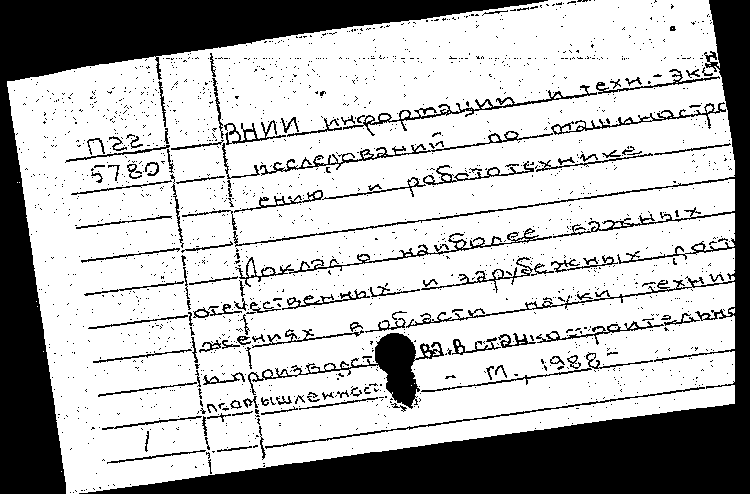 П22
5780
ВНИИ информации и техн.-экон
исследований по машиностро
ению и робототехнике
Доклад о наиболее важных
отечественных и зарубежных дости
жениях в области науки, техники
и производства в станкостроительно
промышленнос
- М., 1988-
1